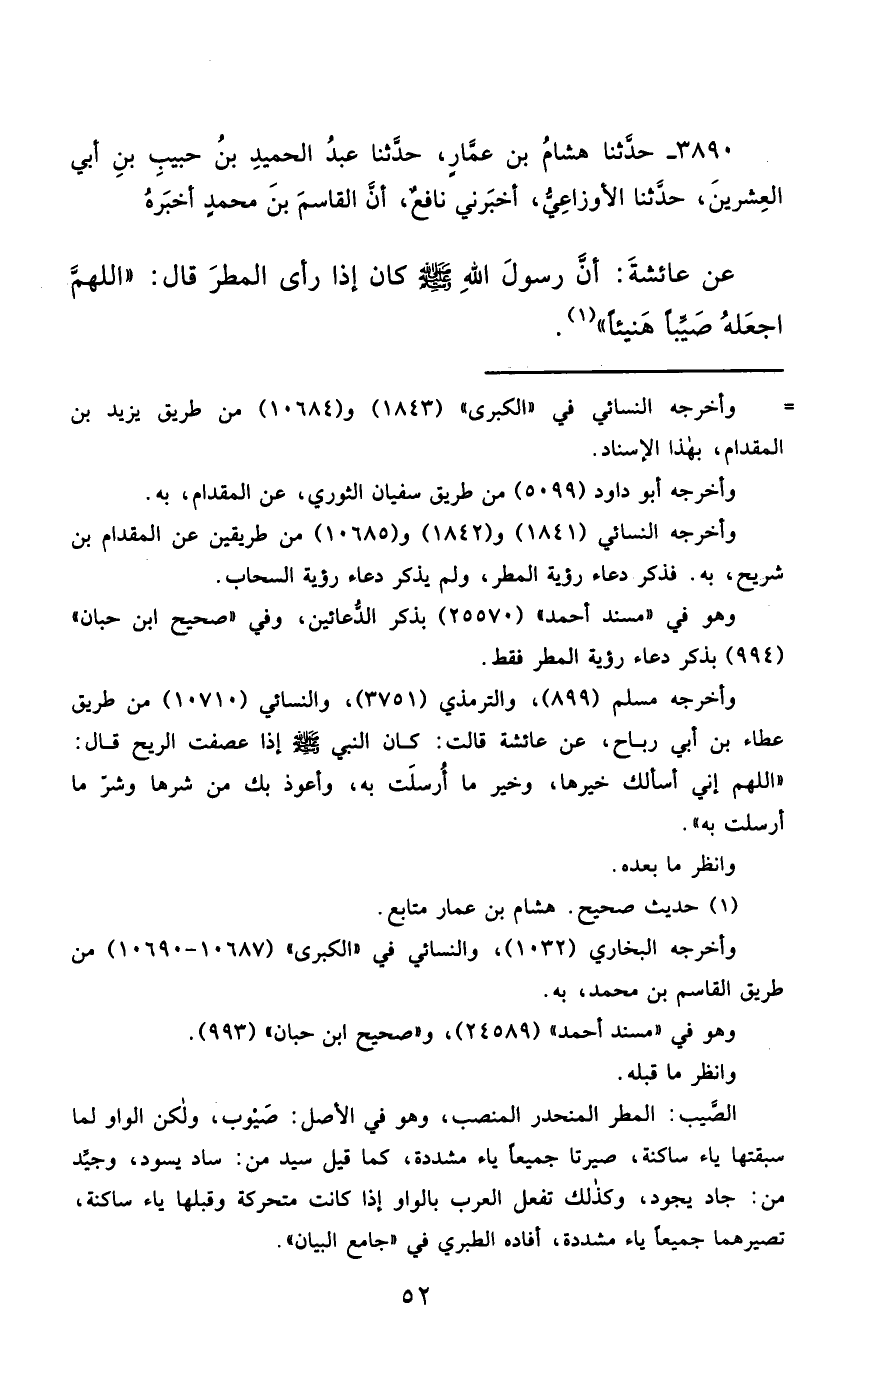 ٣٨٩٠ـ حدَّثنا هشامُ بن عمَّارٍ، حدَّثنا عبدُ الحميدِ بنُ حبيبِ بنِ أبي
العِشرينَ، حدَّثنا الأوزاعِيُّ، أخبَرني نافعٌ، أنَّ القاسمَ بنَ محمدٍ أخبَرهُ
عن عائشةَ: أنَّ رسولَ اللهِ ﷺ كان إذا رأى المطرَ قال: «اللهمَّ
اجعَلهُ صَيِّباً هَنيئاً»(١).
= وأخرجه النسائي في «الكبرى» (١٨٤٣) و(١٠٦٨٤) من طريق يزيد بن
المقدام، بهٰذا الإسناد.
وأخرجه أبو داود (٥٠٩٩) من طريق سفيان الثوري، عن المقدام، به.
وأخرجه النسائي (١٨٤١) و(١٨٤٢) و(١٠٦٨٥) من طريقين عن المقدام بن
شريح، به. فذكر دعاء رؤية المطر، ولم يذكر دعاء رؤية السحاب.
وهو في «مسند أحمد» (٢٥٥٧٠) بذكر الدُّعائين، وفي «صحيح ابن حبان»
(٩٩٤) بذكر دعاء رؤية المطر فقط.
وأخرجه مسلم (٨٩٩)، والترمذي (٣٧٥١)، والنسائي (١٠٧١٠) من طريق
عطاء بن أبي رباح، عن عائشة قالت: كان النبي ﷺ إذا عصفت الريح قال:
«اللهم إني أسألك خيرها، وخير ما أُرسلَت به، وأعوذ بك من شرها وشرّ ما
أرسلت به».
وانظر ما بعده.
(١) حديث صحيح. هشام بن عمار متابع.
وأخرجه البخاري (١٠٣٢)، والنسائي في «الكبرى» (١٠٦٨٧-١٠٦٩٠) من
طريق القاسم بن محمد، به.
وهو في «مسند أحمد» (٢٤٥٨٩)، و«صحيح ابن حبان» (٩٩٣).
وانظر ما قبله.
الصَّيب: المطر المنحدر المنصب، وهو في الأصل: صَيْوب، ولٰكن الواو لما
سبقتها ياء ساكنة، صيرتا جميعاً ياء مشددة، كما قيل سيد من: ساد يسود، وجيِّد
من: جاد يجود، وكذٰلك تفعل العرب بالواو إذا كانت متحركة وقبلها ياء ساكنة،
تصيرهما جميعاً ياء مشددة، أفاده الطبري في «جامع البيان».
٥٢